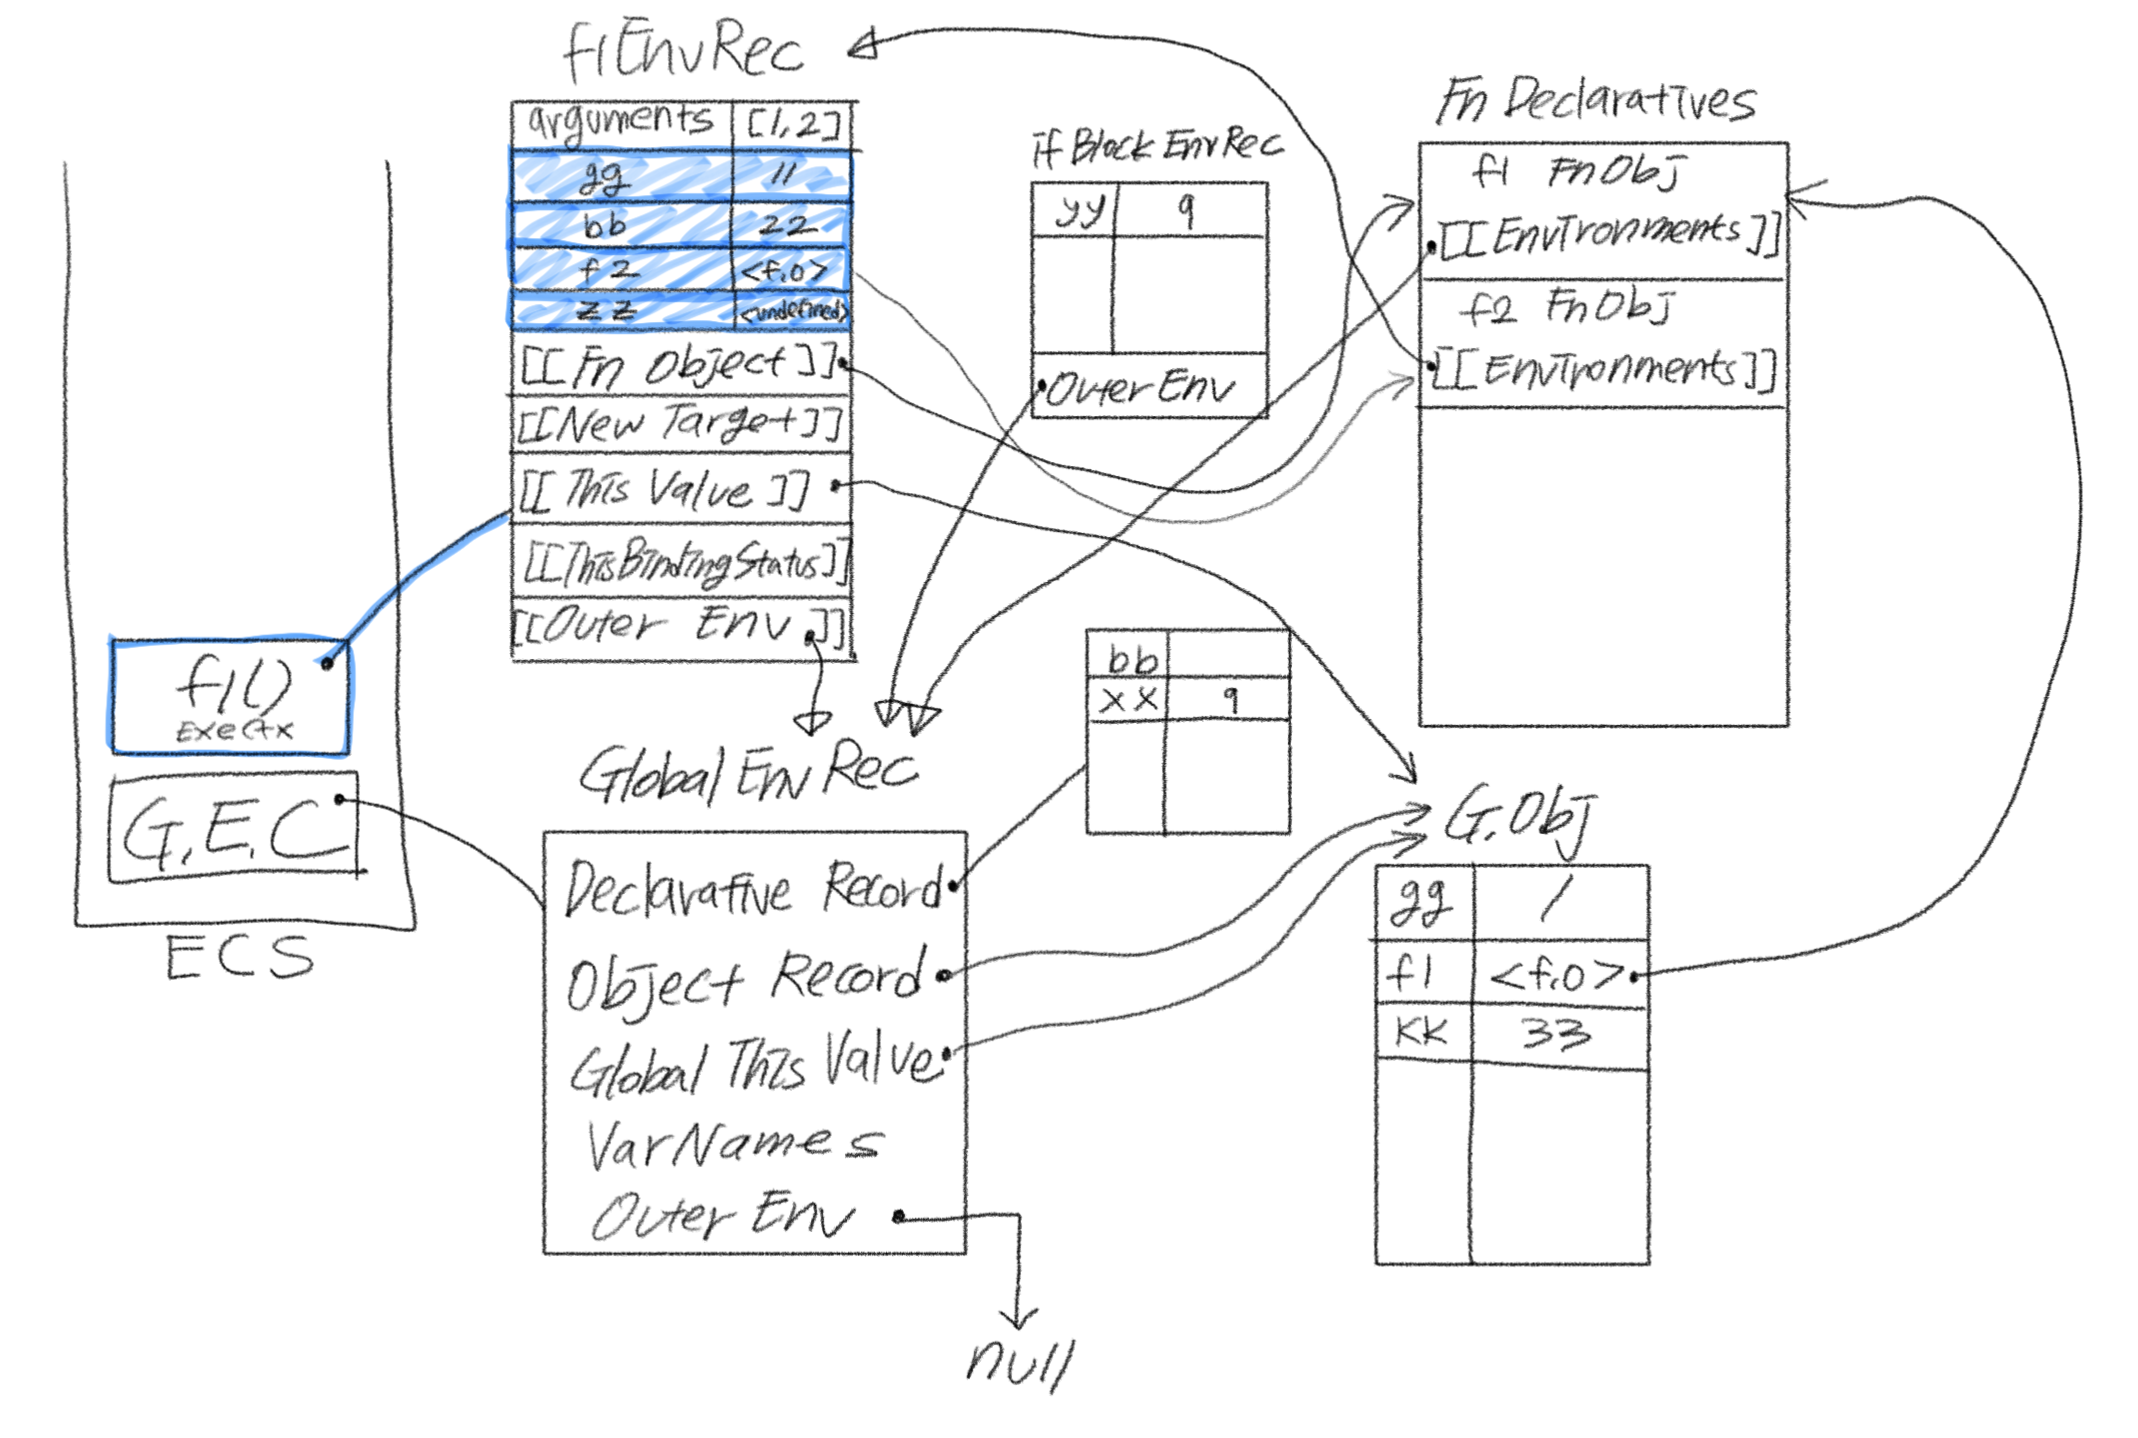 f1EnvRec
arguments [1,2]
gg 11
bb 22
f2 <f.o>
zz <undefined>
[[Fn Object]]
[[New Target]]
[[This Value]]
[[ThisBindingStatus]]
[[Outer Env]]
if Block EnvRec
yy 9
Outer Env
Fn Declaratives
f1 FnObj
[[Environments]]
f2 FnObj
[[Environments]]
f1()
ExeCtx
G.E.C
ECS
Global EnvRec
Declarative Record
Object Record
Global This Value
VarNames
Outer Env
null
bb
xx 9
G.Obj
gg 1
f1 <f.o>
KK 33